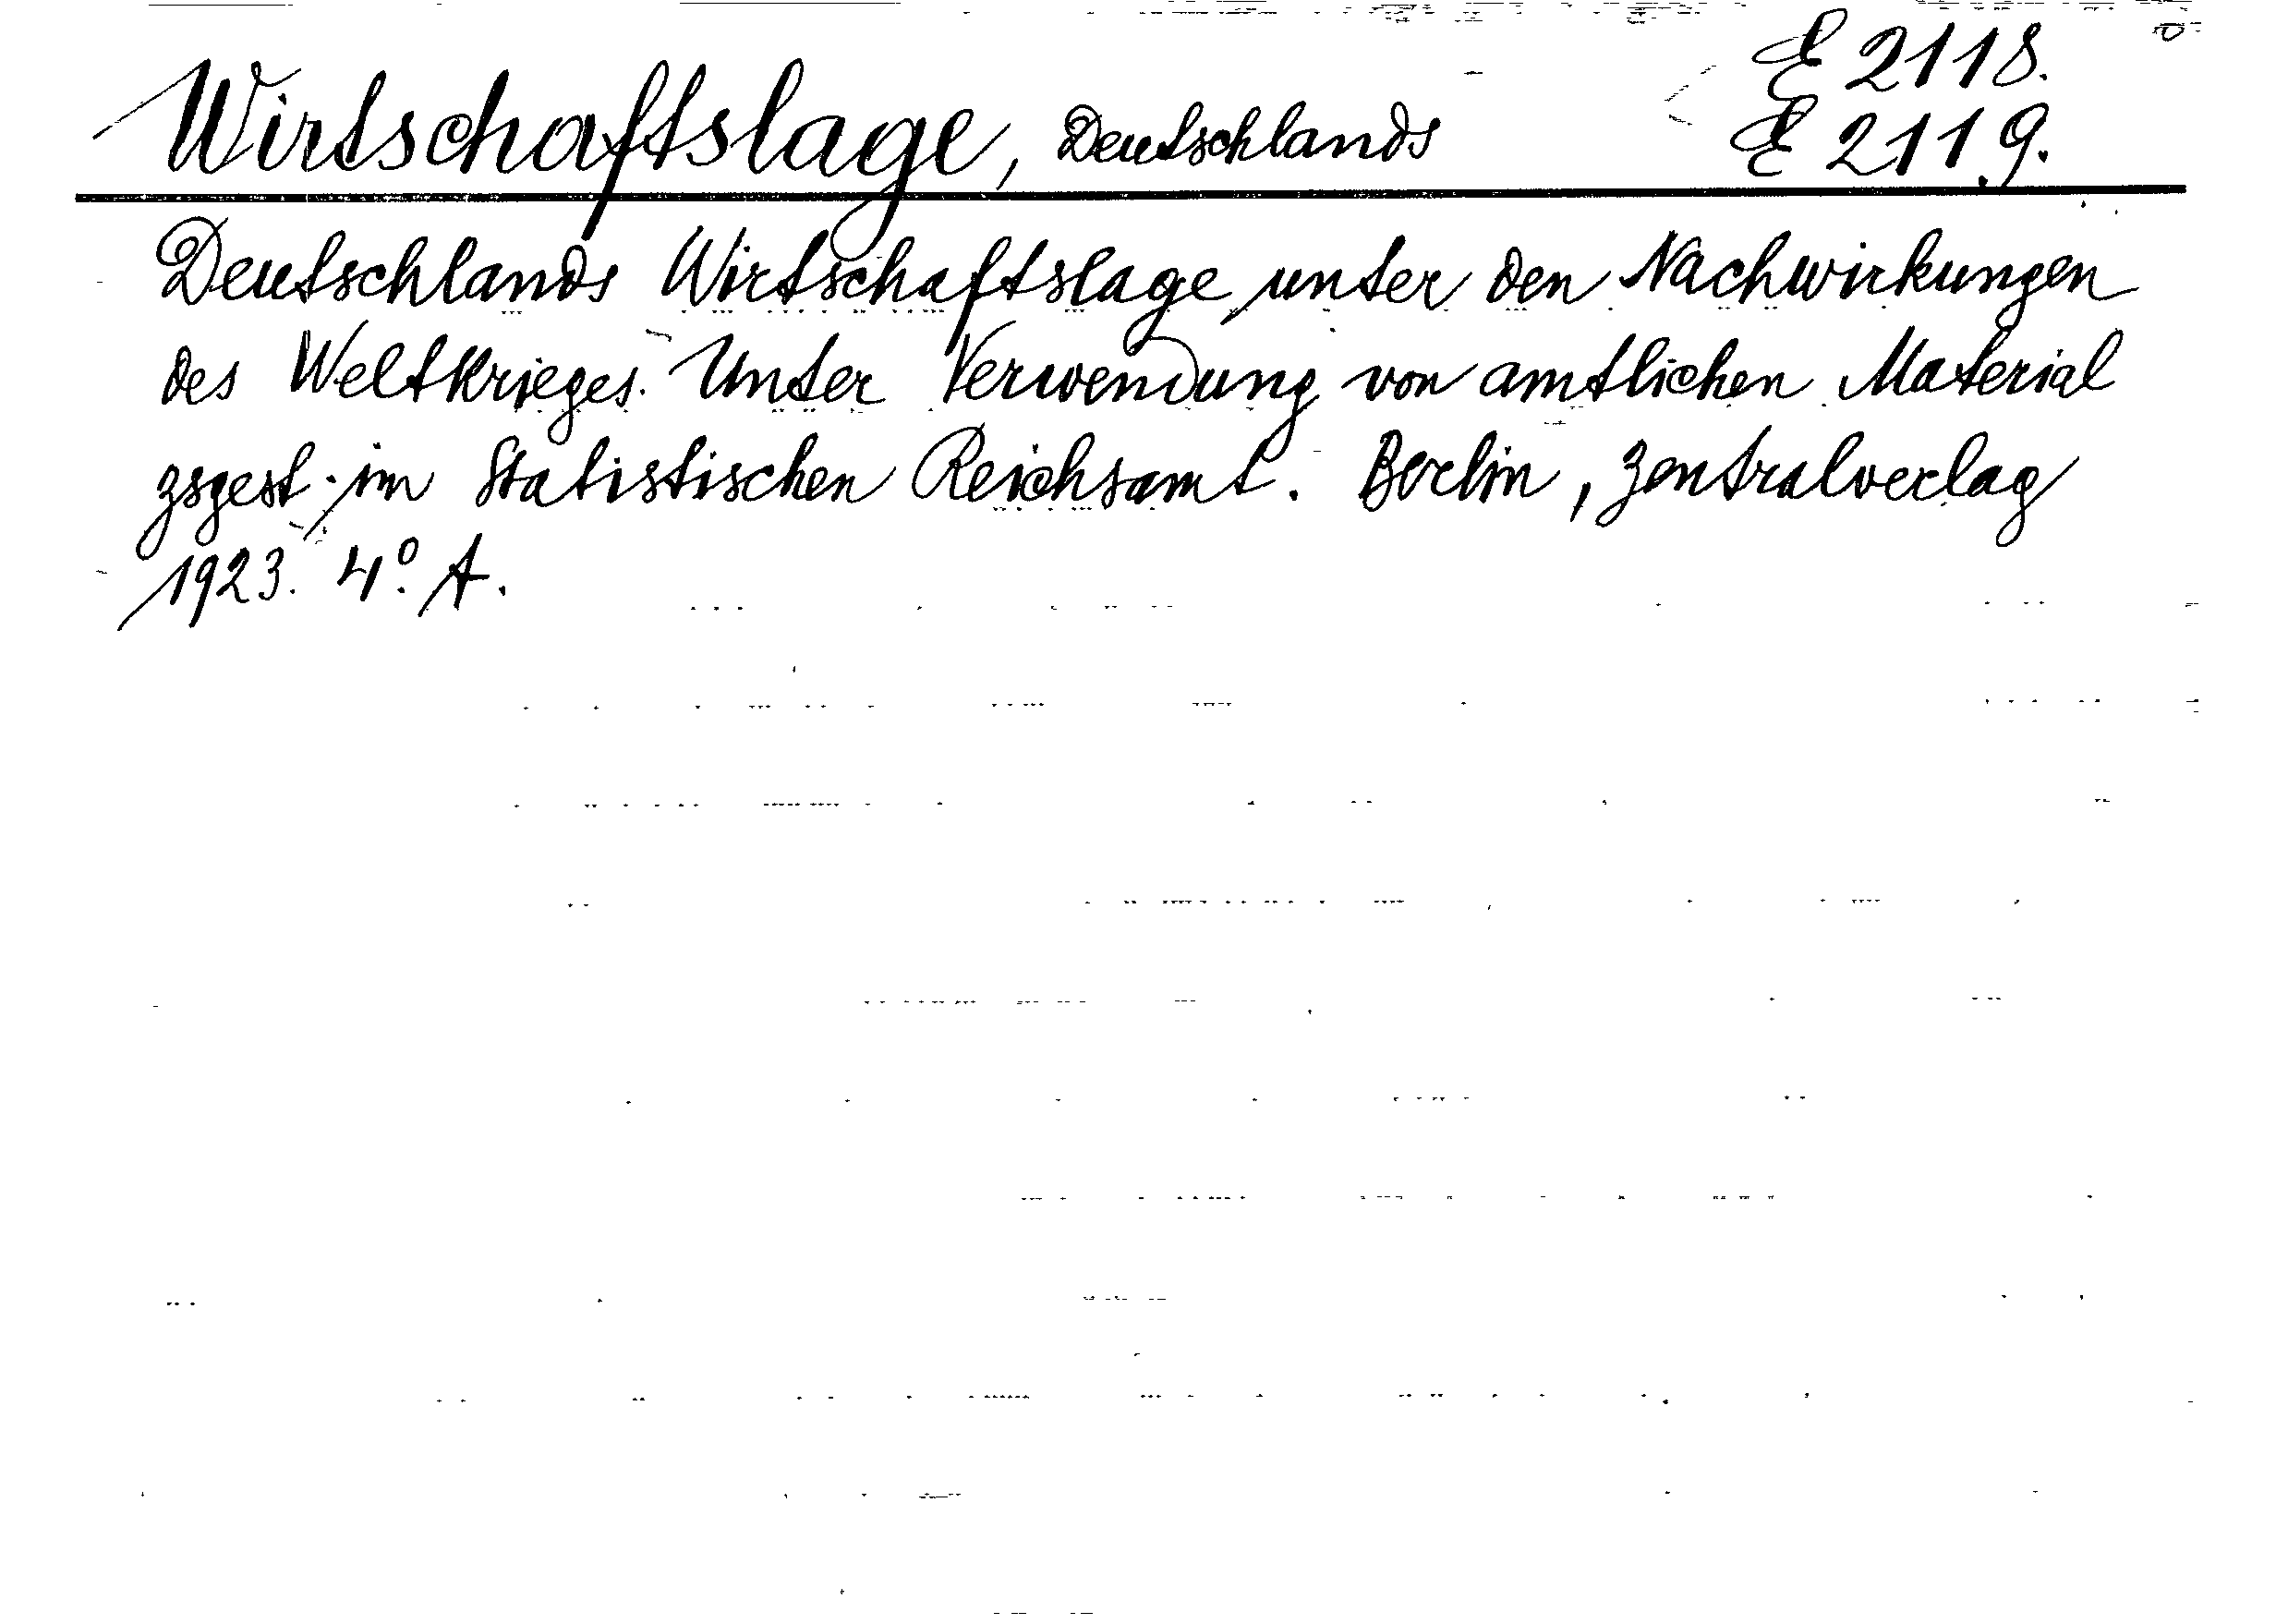 E 2118.
Wirtschaftslage, Deutschlands E 2119.
Deutschlands Wirtschaftslage unter den Nachwirkungen
des Weltkrieges. Unter Verwendung von amtlichen Material
zsgest. im Statistischen Reichsamt. Berlin, Zentralverlag
1923. 4° A.